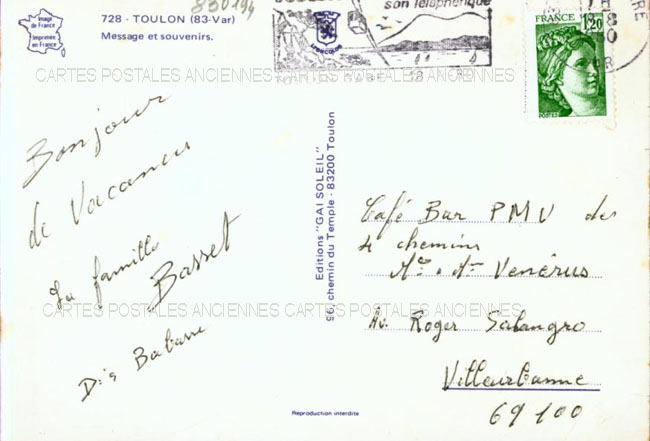 830194
Image de France
Imprimée en France
728 - TOULON (83-Var)
Message et souvenirs.
son Téléphérique
TOULON
18
80
FRANCE
1,20
POSTES
CARTES POSTALES ANCIENNES CARTES POSTALES ANCIENNES
Bonjour
de Vacances
La famille
Basset
Editions "GAI SOLEIL"
96, chemin du Temple - 83200 Toulon
Café Bar PMU des
4 chemins
Mr. Mme Venérus
CARTES POSTALES ANCIENNES CARTES POSTALES ANCIENNES
Av. Roger Salangro
Villeurbanne
69100
Reproduction interdite